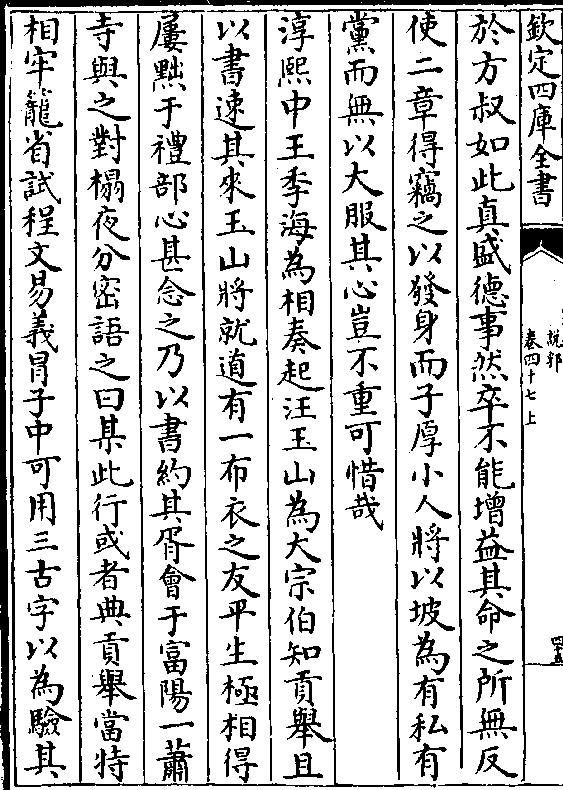 欽定四庫全書
說郛
卷四十七上
於方叔如此真盛德事然卒不能增益其命之所無反
使二章得竊之以發身而子厚小人將以坡為有私有
黨而無以大服其心豈不重可惜哉
淳熙中王季海為相奏起汪玉山為大宗伯知貢舉且
以書速其來玉山將就道有一布衣之友平生極相得
屢黜于禮部心甚念之乃以書約其胥會于富陽一蕭
寺與之對榻夜分密語之曰某此行或者典貢舉當特
相牢籠省試程文易義冒子中可用三古字以為驗其